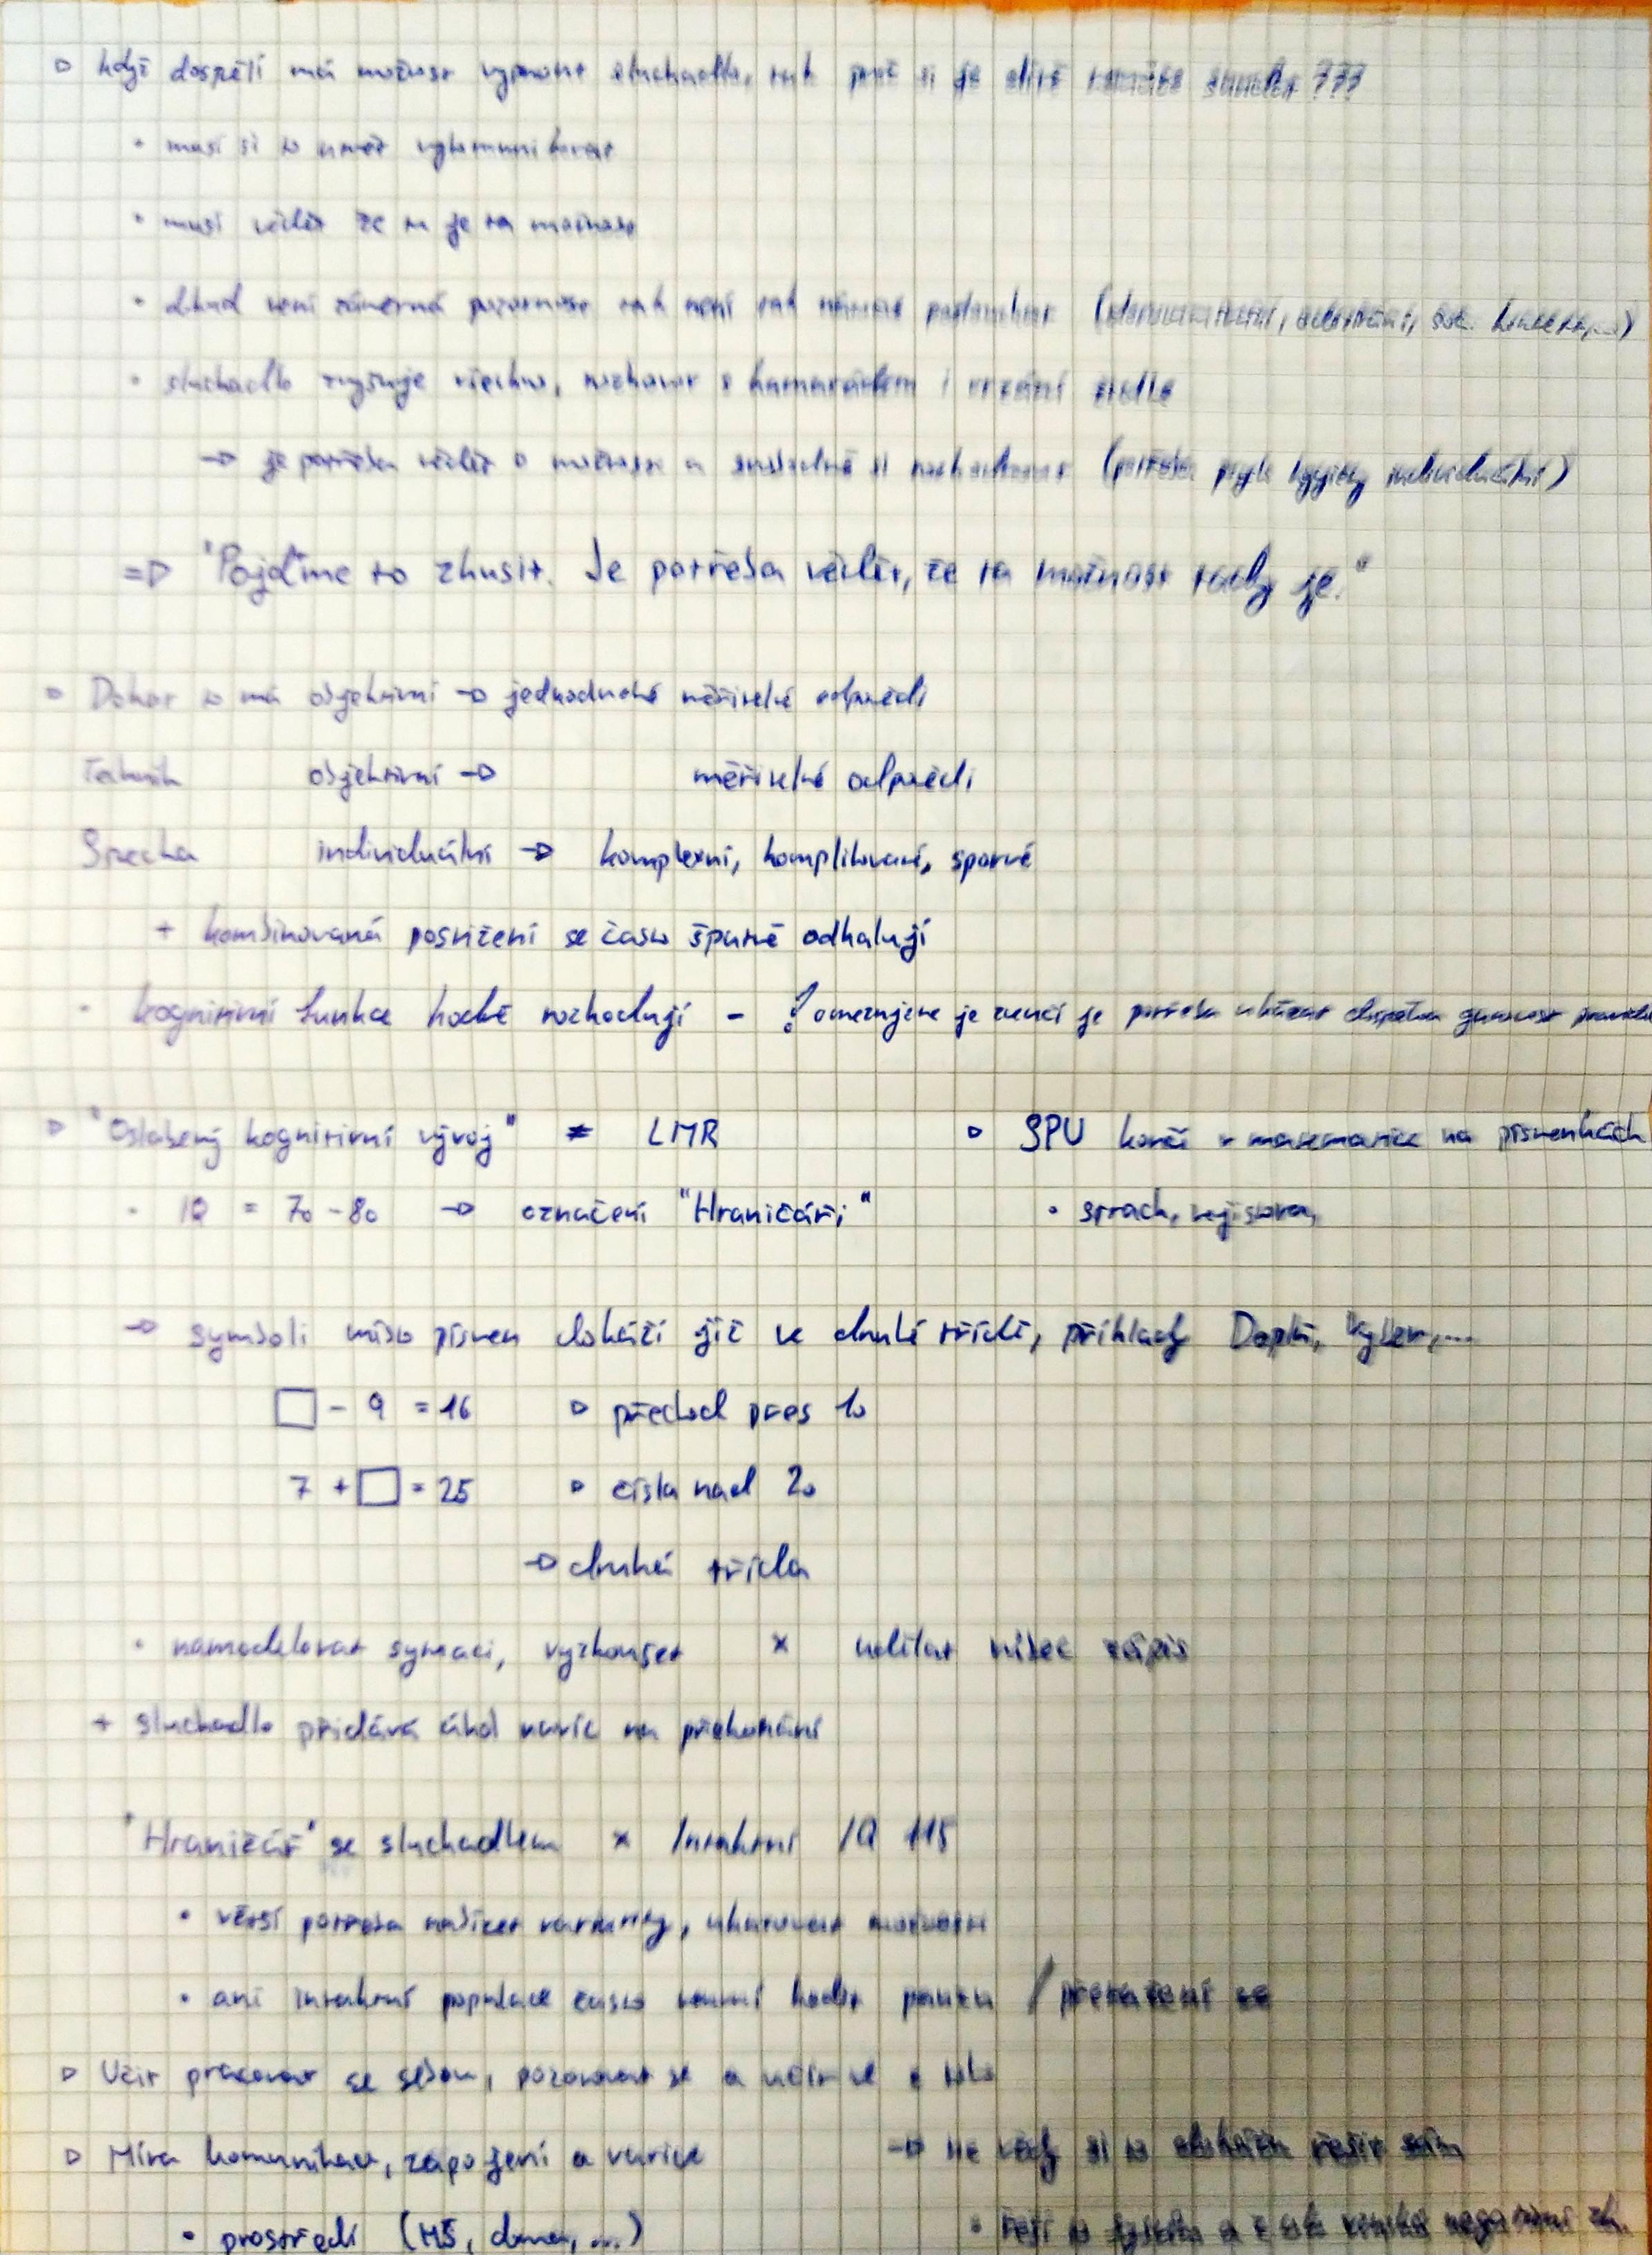 ▷ když dospělí má možnost vypnout sluchadlo, tak proč si je dítě nemůže sundat ???
• musí si to umět vykomunikovat
• musí vědět že tu je ta možnost
• dokud není záměrná pozornost tak není tak náročné poslouchat
• sluchadlo zvyšuje všechno, rozhovor s kamarádem i vrzání židle
→ je potřeba vědět o možnosti a svobodně si rozhodnout (potřeba psych hygieny individuální)
=> "Pojďme to zkusit. Je potřeba vědět, že ta možnost tady je."
▷ Doktor to má objektivní → jednoduché měřitelné odpovědi
Technik objektivní → měřitelné odpovědi
Surdo individuální → komplexní, komplikované, sporné
+ kombinovaná postižení se často špatně odhalují
- kognitivní funkce hodně rozhodují - ! omezujeme je je potřeba
▷ "Oslabený kognitivní vývoj" ≠ LMR
▷ SPU končí v matematice na písmenkách
- IQ = 70 - 80 → označení "Hraničáři"
• strach, nejistota,
→ symboli místo písmen dokáží již ve druhé třídě, příklady Doplň, Vyber,...
□ - 9 = 16 ▷ přechod přes 10
7 + □ = 25 ▷ čísla nad 20
→ druhá třída
• namodelovat sytuaci, vyzkoušet x udělat vůbec zápis
+ sluchadlo přidává úkol navíc na překonání
"Hraničář" se sluchadlem x Intaktní IQ 115
• větší potřeba nabízet varianty, ukazovat možnosti
• ani intaktní populace často neumí hodit pauzu / přetažení se
▷ Učit pracovat se sebou, pozorovat se a učit se z toho
▷ Míra komunikace, zapojení a varice
→ ne vždy si to dokáže řešit sám
• prostředí (MŠ, doma, ...)